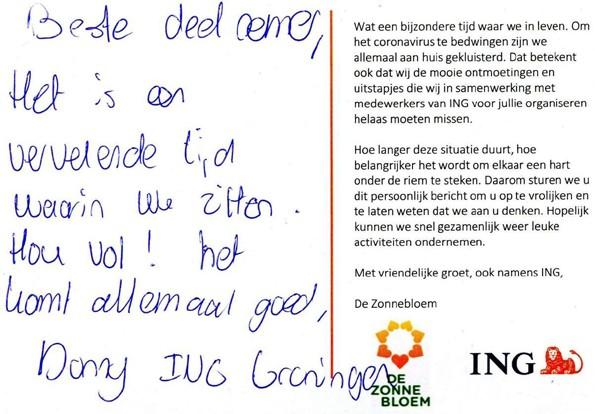 Beste deelnemer,
Het is een
vervelende tijd
waarin we zitten.
Hou vol! het
komt allemaal goed,
Danny ING Groningen
Wat een bijzondere tijd waar we in leven. Om
het coronavirus te bedwingen zijn we
allemaal aan huis gekluisterd. Dat betekent
ook dat wij de mooie ontmoetingen en
uitstapjes die wij in samenwerking met
medewerkers van ING voor jullie organiseren
helaas moeten missen.
Hoe langer deze situatie duurt, hoe
belangrijker het wordt om elkaar een hart
onder de riem te steken. Daarom sturen we u
dit persoonlijk bericht om u op te vrolijken en
te laten weten dat we aan u denken. Hopelijk
kunnen we snel gezamenlijk weer leuke
activiteiten ondernemen.
Met vriendelijke groet, ook namens ING,
De Zonnebloem
DE
ZONNE
BLOEM
ING